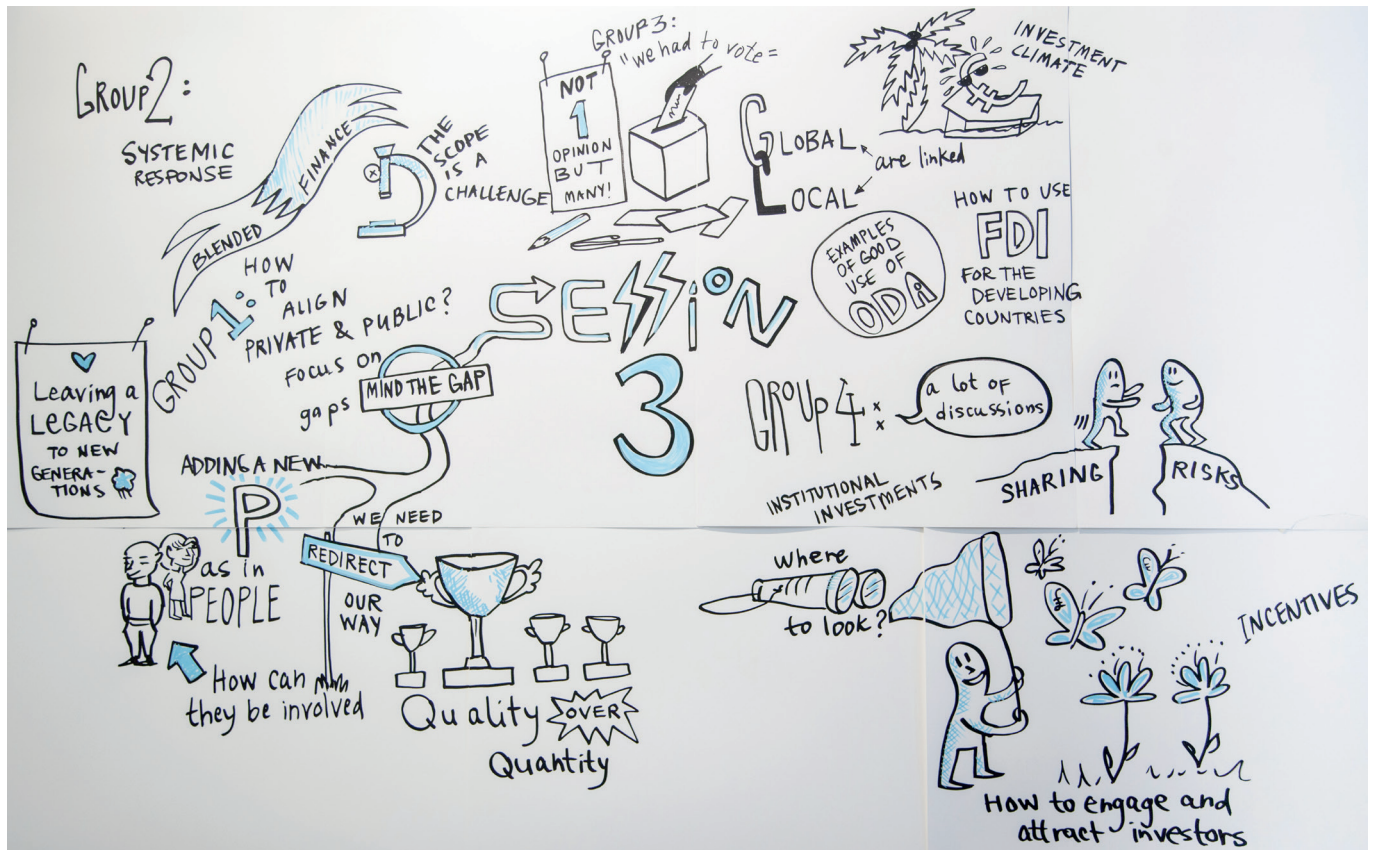 GROUP 2:
SYSTEMIC
RESPONSE
BLENDED
FINANCE
THE
SCOPE
IS A
CHALLENGE
GROUP 3:
"we had to vote =
NOT
1
OPINION
BUT
MANY!
GLOBAL
LOCAL
are linked
INVESTMENT
CLIMATE
EXAMPLES
OF GOOD
USE OF
ODA
HOW TO USE
FDI
FOR THE
DEVELOPING
COUNTRIES
SESSION
3
GROUP 1:
HOW
TO
ALIGN
PRIVATE & PUBLIC?
FOCUS ON
gaps
MIND THE GAP
Leaving a
LEGACY
TO NEW
GENERA-
TIONS
ADDING A NEW
P
as in
PEOPLE
How can
they be involved
WE NEED
TO
REDIRECT
OUR
WAY
Quality
OVER
Quantity
GROUP 4:
a lot of
discussions
INSTITUTIONAL
INVESTMENTS
SHARING
RISKS
where
to look?
INCENTIVES
How to engage and
attract investors